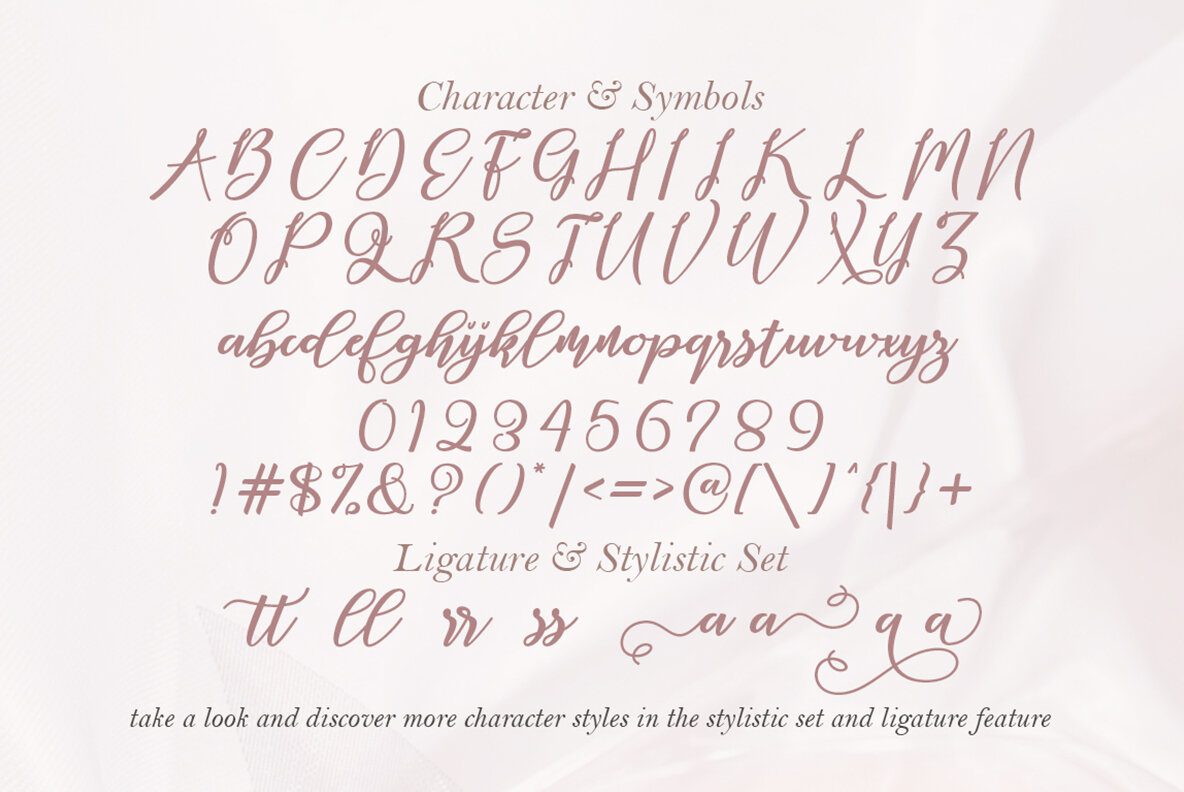 Character & Symbols
A B C D E F G H I J K L M N
O P Q R S T U V W X Y Z
abcdefghijklmnopqrstuvwxyz
0 1 2 3 4 5 6 7 8 9
! # $ % & ? ( ) * / < = > @ [ \ ] ^ { | } +
Ligature & Stylistic Set
tt ll rr ss a a a a
take a look and discover more character styles in the stylistic set and ligature feature